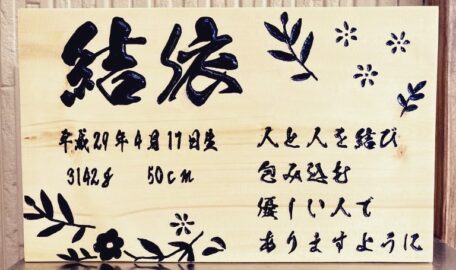 結依
平成29年4月17日生
3142g 50cm
人と人を結び
包み込む
優しい人で
ありますように